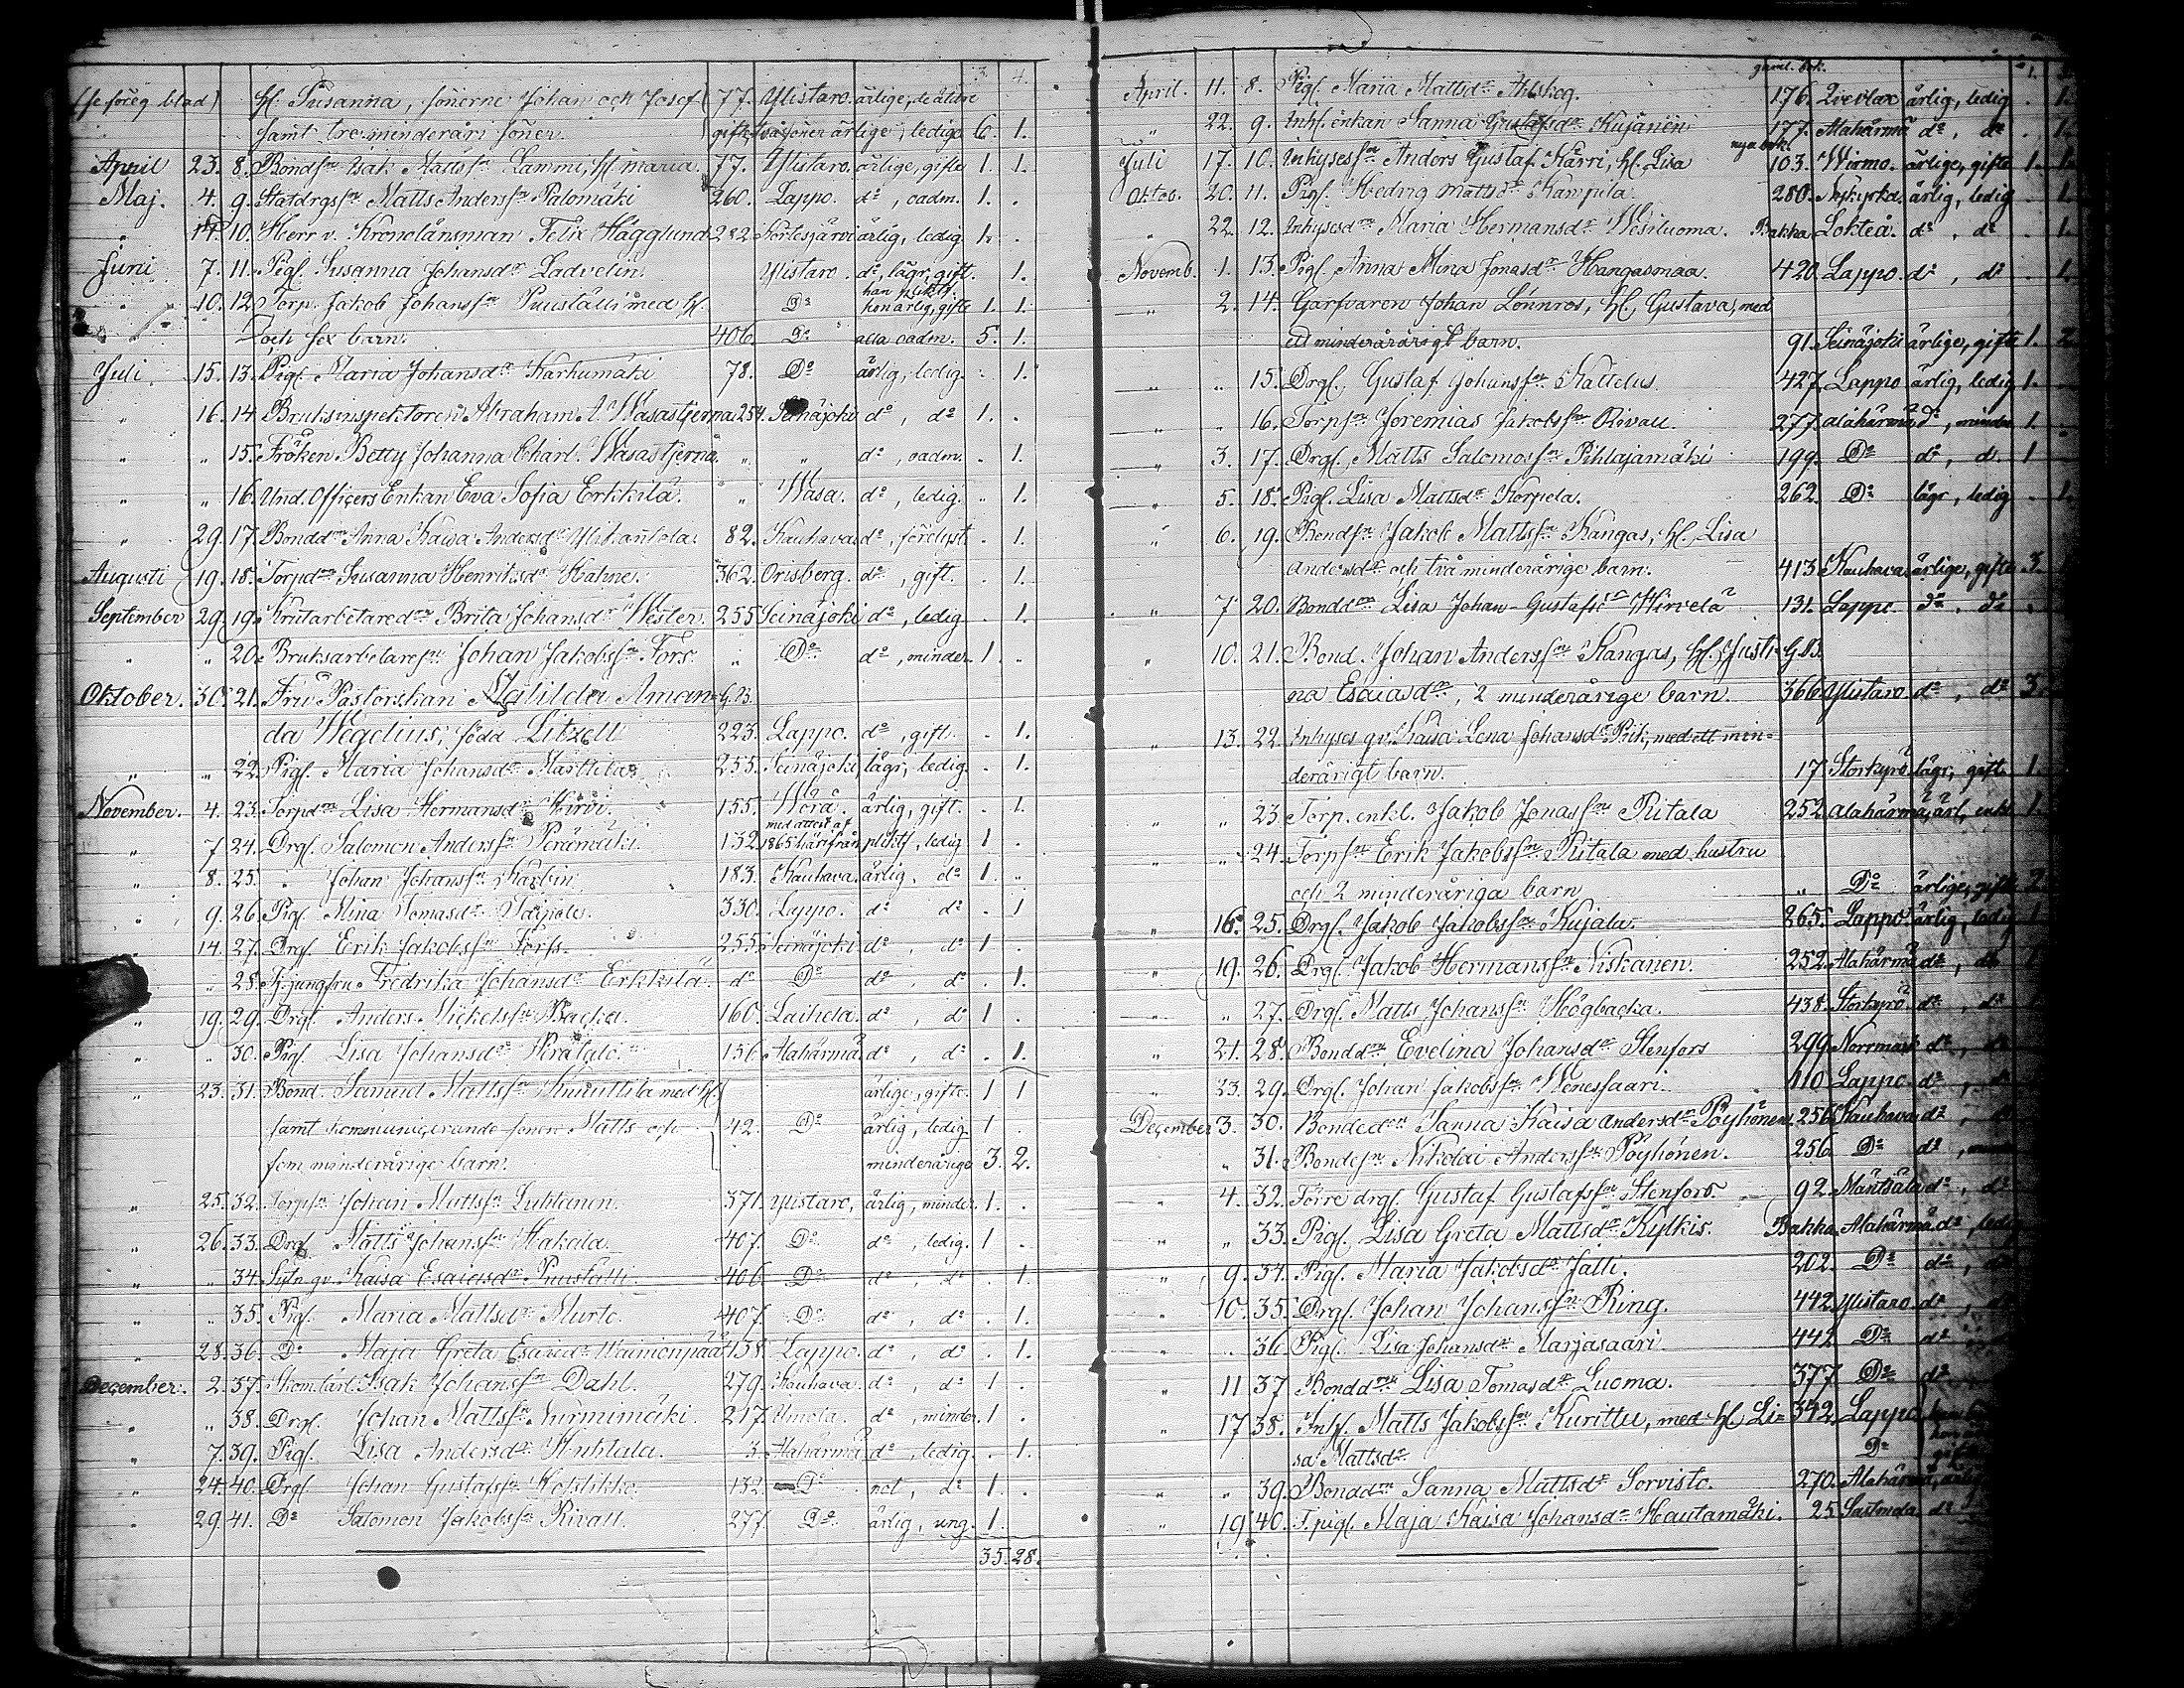 3. 4.
(se föreg blad) hu. Susanna, sönerne Johan och Josef 77. Ylistaro. ärlige, de äldre
samt tre minderåri söner. gifte, två söner ärlige, ledige 6. 1.
April 23. 8. Bondsn Isak Mattssn Lammi, hu Maria. 77. Ylistaro. ärlige, gifte 1. 1.
Maj. 4. 9. Statdrgsn Matts Anderssn Palomäki 260. Lappo. do, oadm. 1. .
" 14. 10. Herr v. Kronolänsman Felix Hägglund 282. Kortesjärvi ärlig, ledig. 1. .
Juni 7. 11. Pigl. Susanna Johansdr Ladvelin. Ylistaro. do, lägr, gift. . 1.
" 10. 12. Torp. Jakob Johanssn Puuställi med hu. Do hon ärlig, gifte 1. 1.
och sex barn. 406. Do alla oadm. 5. 1.
Juli. 15. 13. Pigl. Maria Johansdr Karhumäki 78. Do ärlig, ledig. . 1.
" 16. 14. Bruksinspektoren Abraham A. Wasastjerna 254. Seinäjoki do, do 1. .
" " 15. Fröken Betty Johanna Charl. Wasastjerna. " " do, oadm. . 1.
" " 16. Und. Officers Enkan Eva Sofia Erkkilä. " Wasa. do, ledig. " 1.
" 29. 17. Bonddn Anna Kaisa Andersdr Ylikantola. 82. Kauhava do, . 1.
Augusti 19. 18. Torpdn Susanna Henriksdr Kahne. 362. Orisberg. do, gift. . 1.
September 29. 19. Krutarbetaredn Brita Johansdr Wester. 255 Seinäjoki do, ledig . 1.
" " 20. Bruksarbetaresn Johan Jakobssn Fors. " Do do, minder. 1. "
Oktober. 30. 21. Fru Pastorskan Matilda Aman= G.B.
da Wegelius, född Litzell 223. Lappo. do, gift. . 1.
" " 22. Pigl. Maria Johansdr Marttila. 255. Seinäjoki, lägr, ledig. . 1.
November. 4. 23. Torpdn Lisa Hermansdr Hirvi. 155. Wörå. ärlig, gift. . 1.
" 7 24. Drgl. Salomon Anderssn Perämäki. 132. med attest af 1865 härifrån pliktf, ledig 1 .
" 8. 25. " Johan Johanssn Karbin 183. Kauhava. ärlig, do 1. "
" 9. 26. Pigl Mina Tomasdr 330. Lappo. do do . 1
14. 27. Drgl. Erik Jakobssn Forss. 255. Seinäjoki do, do 1 .
" 28. Tj.jungfru Fredrika Johansdr Erkkilä. do Do do, do . 1.
" 19. 29. Drgl Anders Mickelssn Backa. 160. Laihela. do, do 1 .
" " 30. Pigl. Lisa Johansdr 156. Alahärmä. do, do . 1.
" 23. 31. Bond. Samuel Mattssn Knuuttila med hu. ärlige, gifte. 1 1
samt kommunicerande sonen Matts och 42. Do ärlig, ledig. 1 .
fem minderårige barn. minderårige 3. 2.
" 25. 32. Torpsn Johan Mattssn Luhtanen. 371. Ylistaro, ärlig, minder. 1. .
" 26. 33. Drgl Matts Johanssn Hakala. 407. Do do, ledig. 1 .
" " 34. Sytn.gv. Kaisa Esaiasdr Puuställi. 406. Do do, do . 1.
" " 35. Pigl. Maria Mattsdr Murto. 407. Do do, do . 1.
" 28. 36. Do Maja Greta Esaiasdr Wäinionpää 138. Lappo. do, do . 1.
December. 2. 37. Isak Johanssn Dahl. 279. Kauhava. do, do 1 .
" " 38. Drgl. Johan Mattssn Nurmimäki. 217. do, minder. 1. .
" 7. 39. Pigl. Lisa Andersdr Huhtala. 3. Alahärmä do, ledig. . 1.
" 24. 40. Drgl Johan Gustafssn 132. Do not, do 1. .
" 29. 41. Do Salomon Jakobssn Rivall. 277 Do ärlig, ung. 1. .
35. 28.
gaml. bok. 1.
April. 11. 8. Pigl. Maria Mattsdr Ahlskog. 176. Qvevlax ärlig, ledig . 1.
" 22. 9. Inhs. enkan Sanna Gustafsdr Kujanen 177. Alahärmä do, do . 1.
Juli 17. 10. Inhysessn Anders Gustaf Karri, hu. Lisa nya bok. 103. Wirmo. ärlige, gifte 1. 1.
Oktob. 20. 11. Pigl. Hedvig Mattsdr Kampula. 280. Nykyrka. ärlig, ledig . 1.
" 22. 12. Inhysesdn Maria Hermansdr Wesiluoma. Bakka Lokteå. do, do . 1.
Novemb. 1. 13. Pigl. Anna Mina Jonasdr Kangasmaa. 420. Lappo. do, do . 1.
" 2. 14. Garfvaren Johan Lönnros, hu. Gustava, med
ett minderårigt barn. 91. Seinäjoki ärlige, gifte 1. 2.
" " 15. Drgl. Gustaf Johanssn Kattelus. 427. Lappo ärlig, ledig 1.
" " 16. Torpsn Jeremias Jakobssn Rivall. 277. Alahärmä do, minder 1.
" 3. 17. Drgl. Matts Salomossn Pihlajamäki 199. Do do, d. 1
" 5. 18. Pigl. Lisa Mattsdr Korpela. 262. Do lägr, ledig . 1.
" 6. 19. Bondsn Jakob Mattssn Kangas, hu. Lisa
Andersdr och två minderårige barn. 413. Kauhava ärlige, gifte 3.
" 7 20. Bonddn Lisa Johan-Gustafsdr Hirvelä 131. Lappo. do, do .
" 10. 21. Bond. Johan Anderssn Kangas, hu. Justi= G.B.
na Esaiasdr, 2 minderårige barn. 366 Ylistaro. do, do 3.
" 13. 22. Inhyses qv. Kaisa Lena Johansdr Piik, med ett min=
derårigt barn. 17 Storkyro. lägr, gift. 1.
" " 23. Torp. enkl. Jakob Jonassn Ritala 252. Alahärmä, ärl, enkl 1.
" " 24. Torpsn Erik Jakobssn Ritala med hustru
och 2 minderåriga barn " Do ärlige, gifte 2
" 16. 25. Drgl. Jakob Jakobssn Kujala. 265. Lappo ärlig, ledig 1
" 19. 26. Drgl. Jakob Hermanssn Niskanen. 252. Alahärmä do, do 1
" " 27. Drgl. Matts Johanssn Högbacka. 438. Storkyro. do, do
" 21. 28. Bonddn Evelina Johansdr Stenfors 299. Norrmark do,
" 23. 29. Drgl. Johan Jakobssn Wenessaari. 410 Lappo. do,
December 3. 30. Bondedn Sanna Kaisa Andersdr Pöyhönen. 256. Kauhava do,
" 31. Bondesn Nikolai Anderssn Pöyhönen. 256. Do do,
" 4. 32. Förre drgl. Gustaf Gustafssn Stenfors. 92. Mäntsälä do, do
" " 33. Pigl. Lisa Greta Mattsdr Kylkis. Bakka. Alahärmä do, ledig
" 9. 34. Pigl. Maria Jakobsdr Jalli. 202. Do do, do
" 10. 35. Drgl. Johan Johanssn Ring. 442. Ylistaro. do,
" " 36. Pigl. Lisa Johansdr Marjasaari. 442. Do do
" 11 37 Bonddn Lisa Tomasdr Luoma. 377 Do do
" 17 38. Inhs. Matts Jakobssn Kurittu, med hu Li= 342 Lappo
sa Mattsdr. Do
" " 39. Bonddn Sanna Mattsdr Sorvisto. 270. Alahärmä,
" 19 40. F. pigl. Maja Kaisa Johansdr Hautamäki. 25 Sastmola do